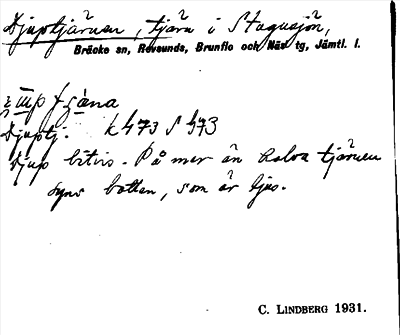 Djuptjärnen, tjärn i Stugusjön,
Bräcke sn, Revsunds, Brunflo och Näs tg, Jämtl. l.
Djuptj. k 473 S 573
Djup bitvis. På mer än halva tjärnen
syns botten, som är ljus.
C. LINDBERG 1931.